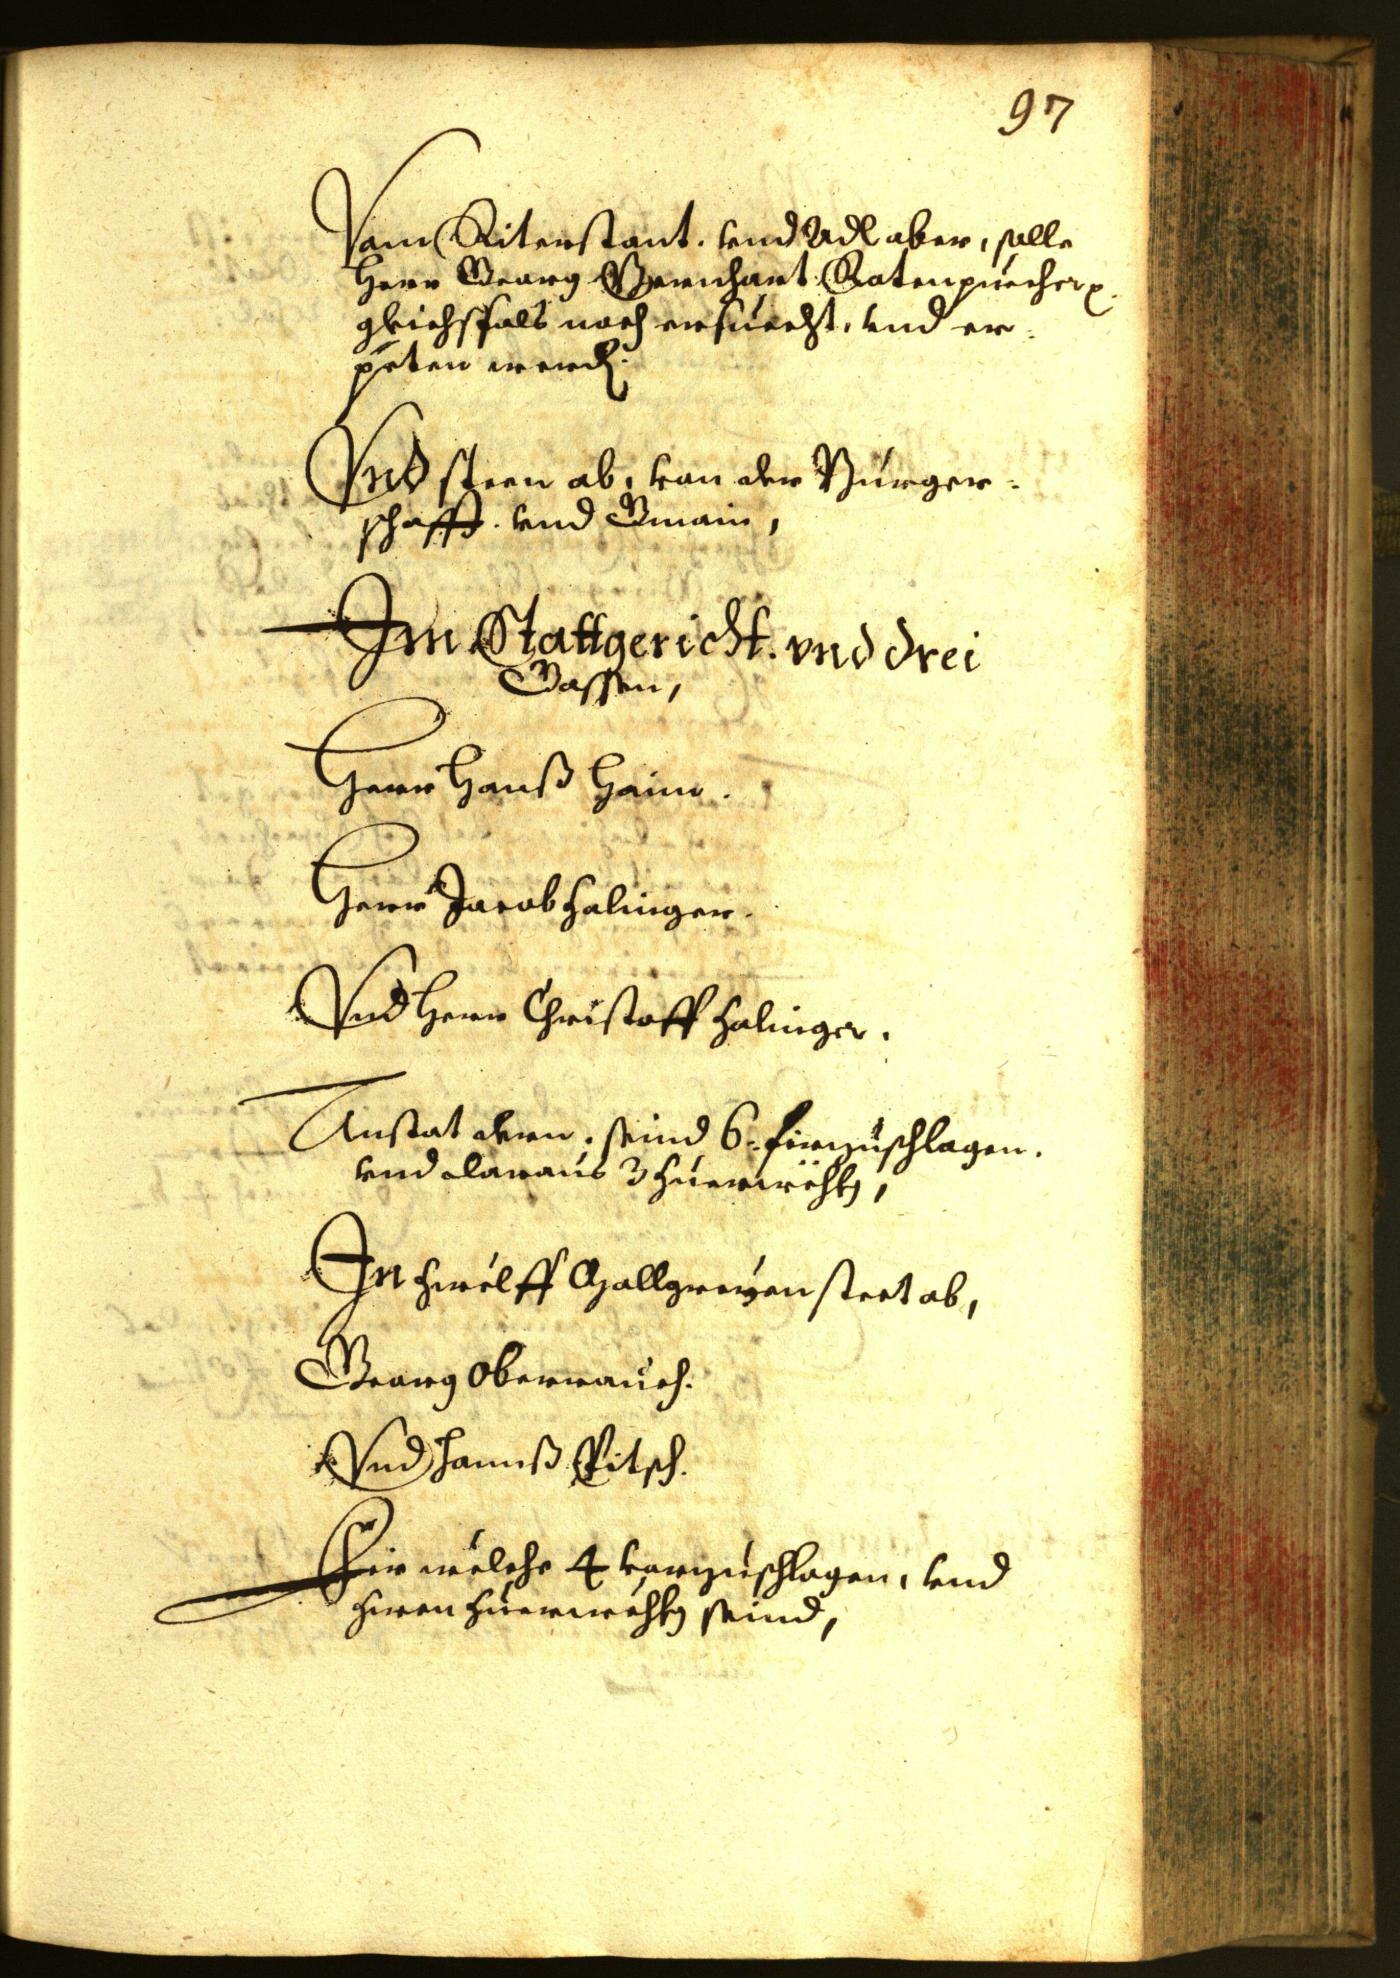 97
Vom Riterstant. vnd Adl aber, solle
Herr Georg Bernhart Rotenpuecher p.
gleichsfals noch ersuecht, vnd er-
peten werdn.
Vnd steen ab, von der Burger-
schafft. vnd Gmain,
Im Stattgericht. vnd drei
Gassen,
Herr Hanß Haim.
Herr Jacob Halinger.
Vnd Herr Christoff Halinger.
Anstat deren. seind 6. firzuschlagen.
vnd daraus 3 zuerwöhln,
In zwelff Mallgreyen steet ab,
Georg Oberrauch.
Vnd Hannß Pitsch.
Fir welche 4 vorzuschlagen, vnd
zwen zuerwehln seind,